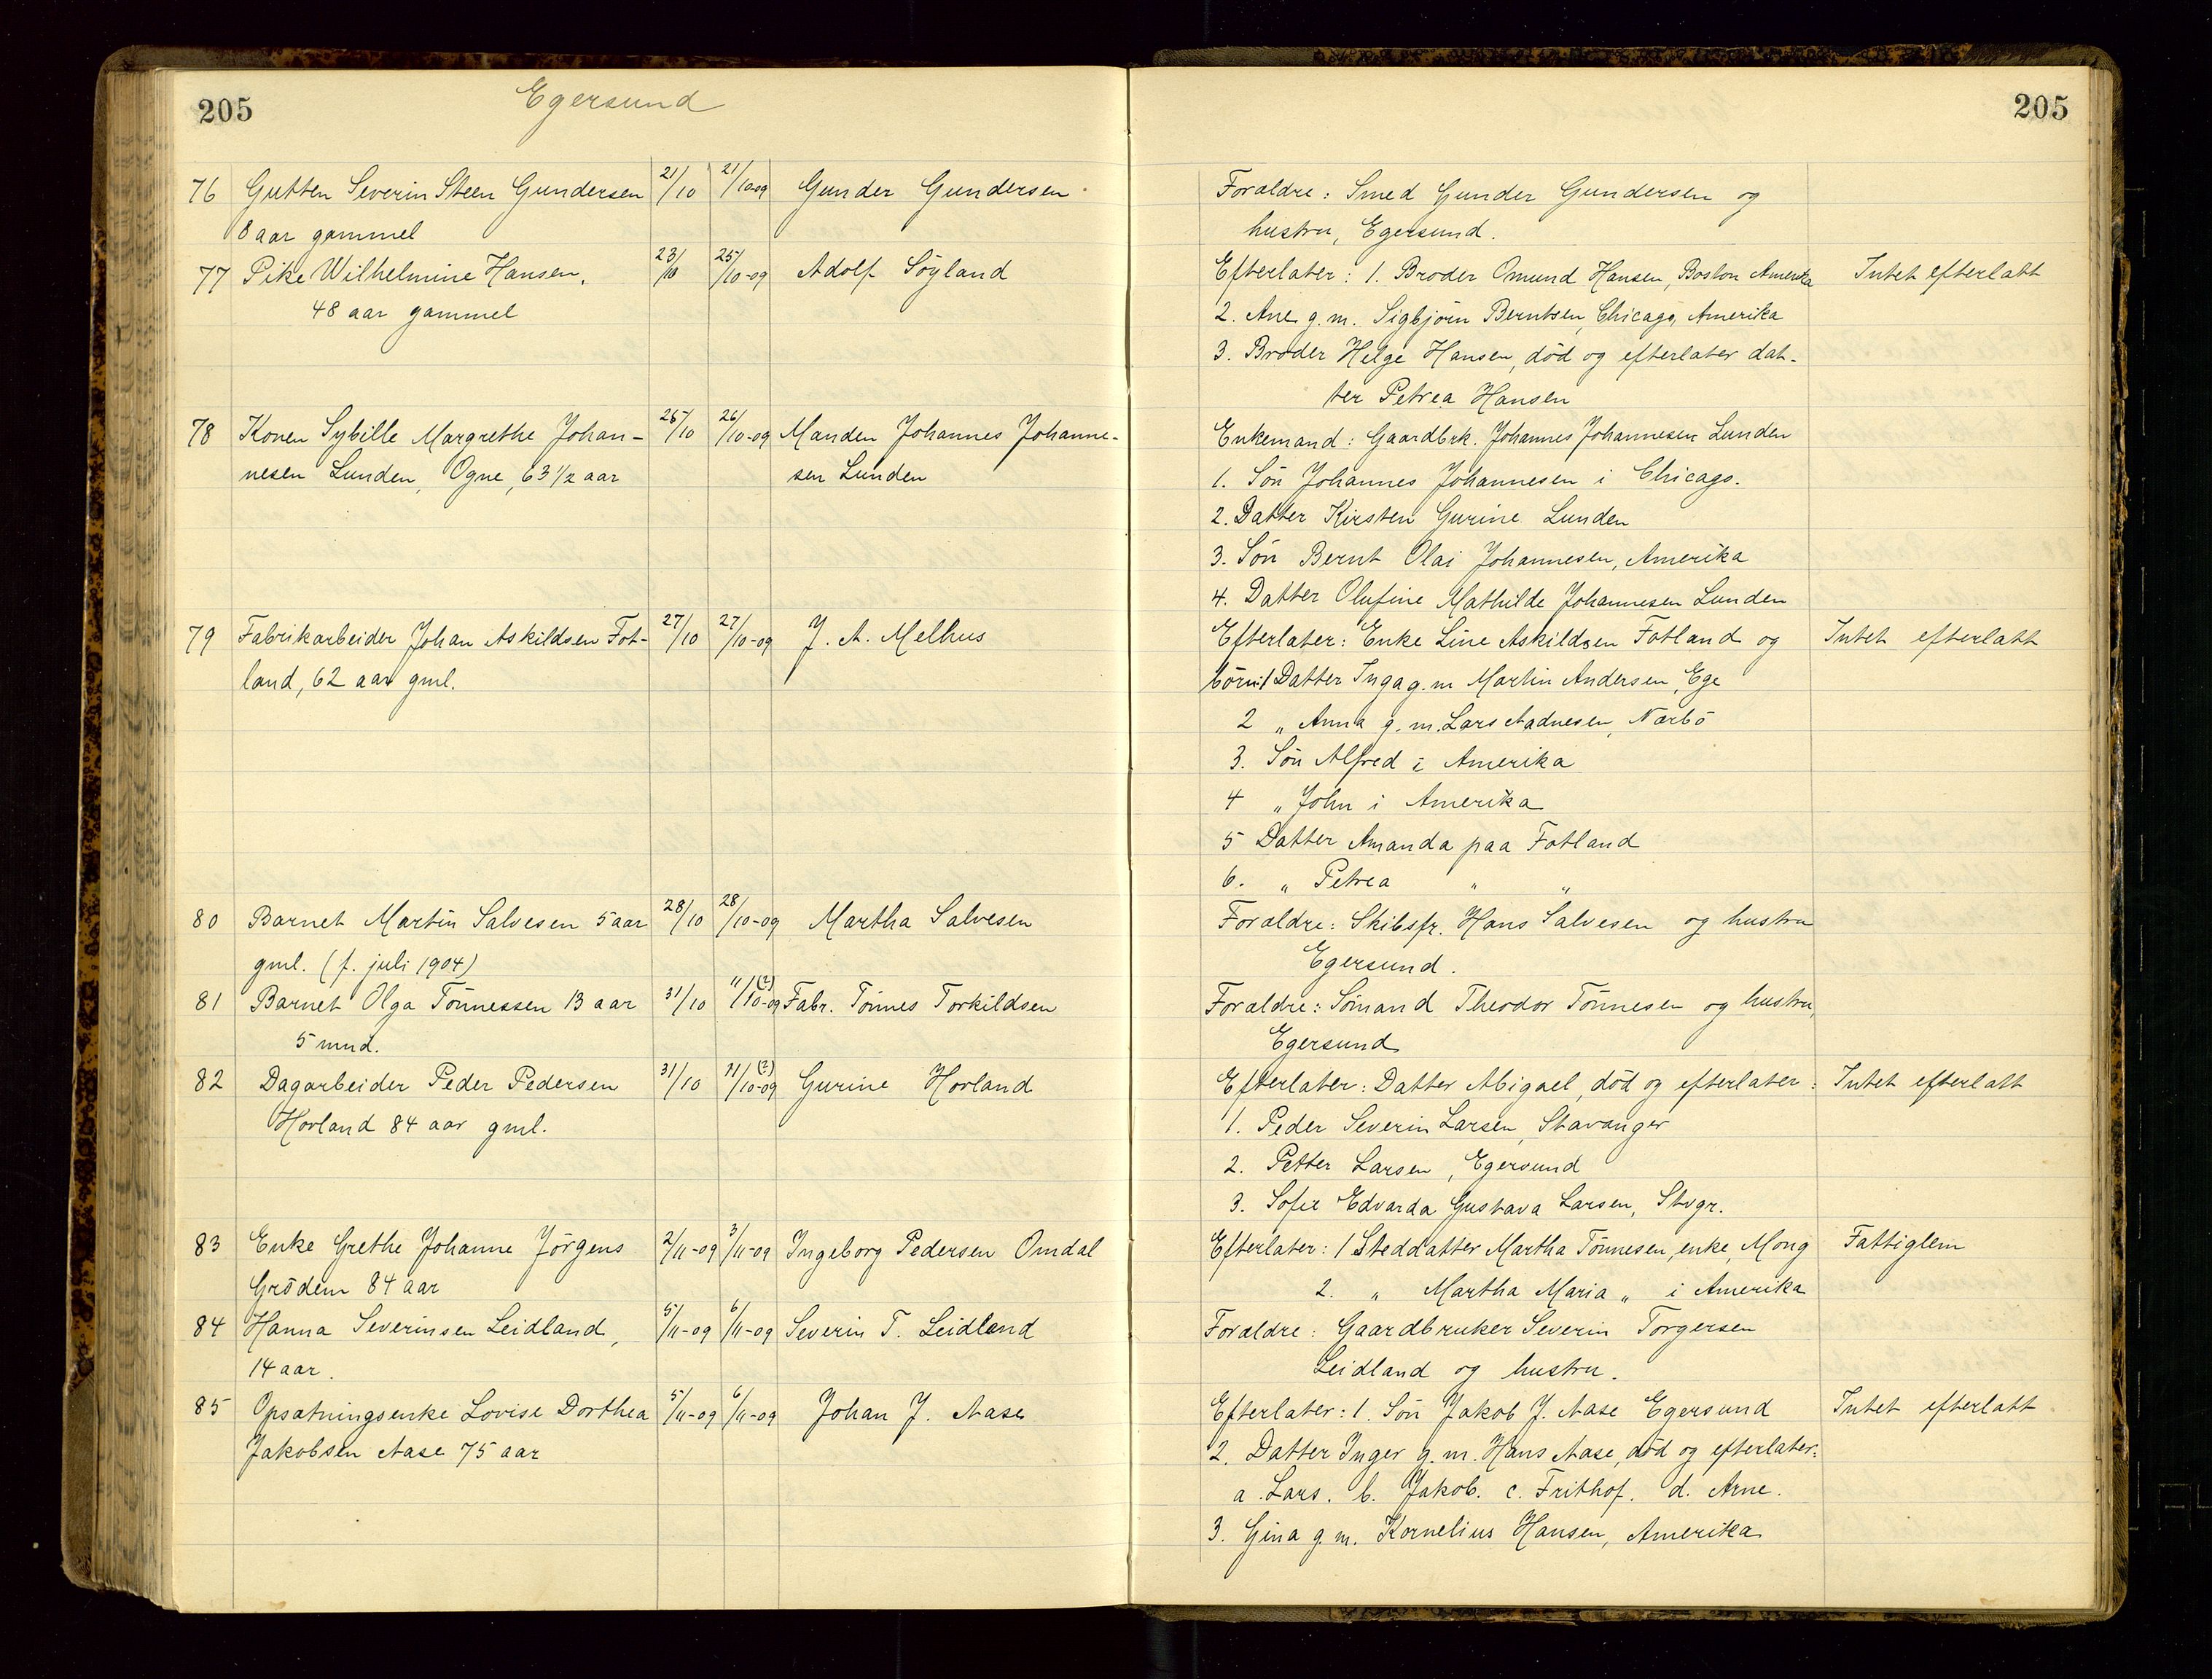 205
Egersund
76 Gutten Severin Steen Gundersen 21/10 21/10-09 Gunder Gundersen
8 aar gammel
77 Pike Wilhelmine Hansen, 23/10 25/10-09 Adolf Söyland
48 aar gammel
78 Konen Sybille Margrethe Johan- 25/10 26/10-09 Manden Johannes Johanne-
nesen Lunden, Ogne, 63 1/2 aar sen Lunden
79 Fabrikarbeider Johan Askildsen Fot- 27/10 27/10-09 J. A. Melhus
land, 62 aar gml.
80 Barnet Martin Salvesen 5 aar 28/10 28/10-09 Martha Salvesen
gml. (f. juli 1904)
81 Barnet Olga Tönnessen 13 aar 31/10 11/10-09 (?) Fabr. Tönnes Torkildsen
5 mnd.
82 Dagarbeider Peder Pedersen 31/10 11/10-09 (?) Gurine Hovland
Hovland 84 aar gml.
83 Enke Grethe Johanne Jörgens 2/11-09 3/11-09 Ingeborg Pedersen Omdal
Grödem 84 aar
84 Hanna Severinsen Leidland, 5/11-09 6/11-09 Severin T. Leidland
14 aar.
85 Opsætningsenke Lovise Dorthea 5/11-09 6/11-09 Johan J. Aase
Jakobsen Aase 75 aar
205
Forældre: Smed Gunder Gundersen og
hustru, Egersund.
Efterlater: 1. Broder Omund Hansen, Boston Amerika Intet efterlatt
2. Ane g.m. Sigbjörn Berntsen, Chicago, Amerika
3. Broder Helge Hansen, död og efterlater dat-
ter Petrea Hansen
Enkemand: Gaardbrk. Johannes Johannesen Lunden
1. Sön Johannes Johannesen i Chicago.
2. Datter Kirsten Gurine Lunden
3. Sön Bernt Olai Johannesen, Amerika
4. Datter Olufine Mathilde Johannesen Lunden
Efterlater: Enke Line Askildsen Fotland og Intet efterlatt
börn: 1 Datter Inga g.m Martin Andersen, Ege
2 " Anna g.m. Lars Aadnesen, Nærbö
3. Sön Alfred i Amerika
4 " John i Amerika
5 Datter Amanda paa Fotland
6. " Petrea " "
Forældre: Skibsfr. Hans Salvesen og hustru
Egersund.
Forældre: Sömand Theodor Tönnesen og hustru,
Egersund
Efterlater: Datter Abigael, död og efterlater: Intet efterlatt
1. Peder Severin Larsen, Stavanger
2. Petter Larsen, Egersund
3. Sofie Edvarda Gustava Larsen, Stvgr.
Efterlater: 1 Steddatter Martha Tönnesen, enke, Mong Fattiglem
2. " Martha Maria " i Amerika
Forældre: Gaardbruker Severin Torgersen
Leidland og hustru.
Efterlater: 1. Sön Jakob J. Aase Egersund Intet efterlatt
2. Datter Inger g.m. Hans Aase, död og efterlater:
a. Lars. b. Jakob. c. Frithof. d. Arne.
3. Gina g.m. Kornelius Hansen, Amerika